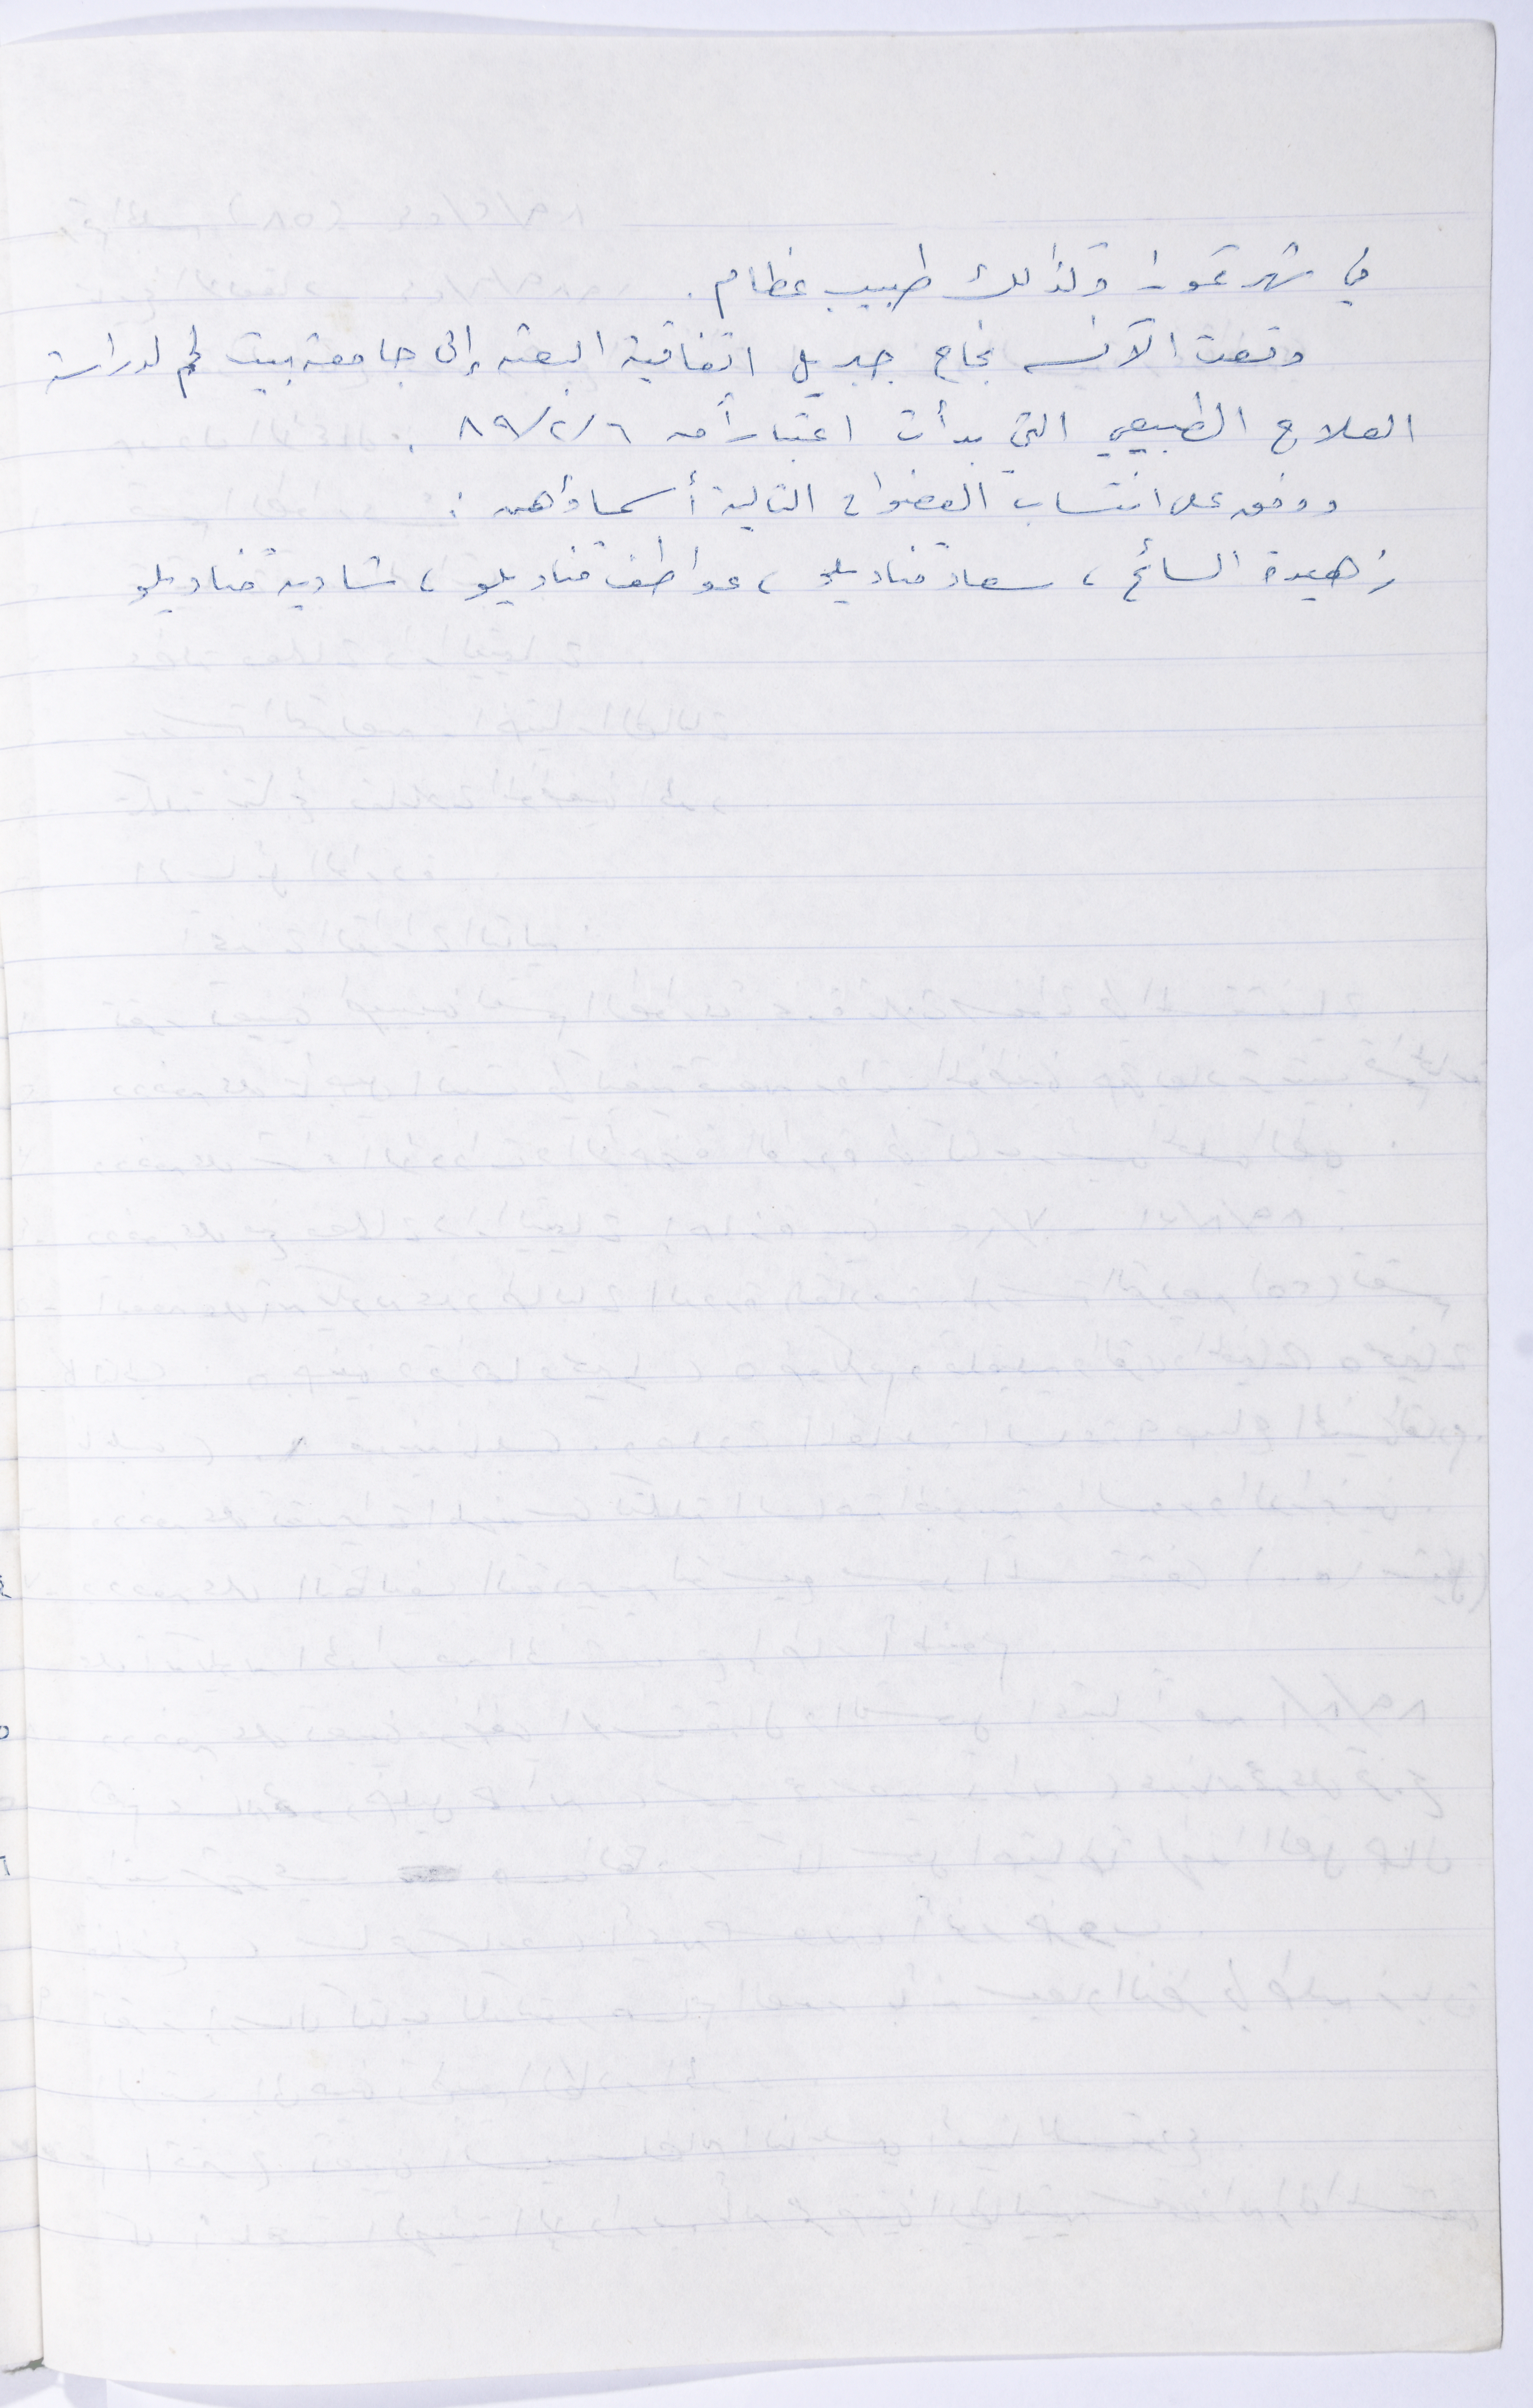 في شهر تموز وكذلك طبيب عظام .
وقعت الآنسه نجاح جبريل اتفاقية البعثه إلى جامعة بيت لحم لدراسة
العلاج الطبيعي التي بدأت اعتباراً من ٨٩/٢/٦ .
ووفق على انتساب العضوات التالية أسماؤهن :
زهيدة السائح ، سعاد قناديلو ، عواطف قناديلو ، شادية قناديلو